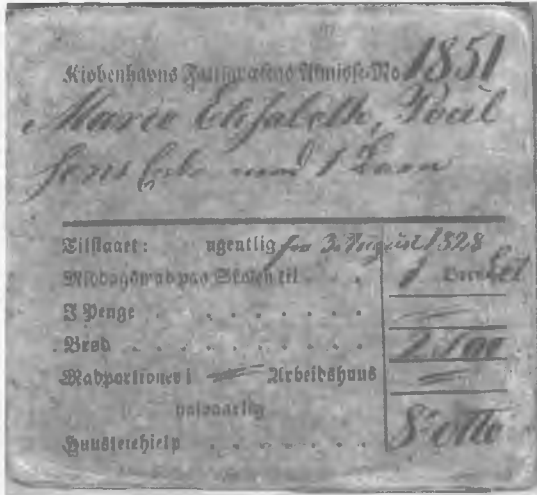 Kiøbenhavns Fattigvæsens Almisse-No 1851
Marie Elisabeth, Poul
med 1 Barn
Tilstaaet: ugentlig fra 3. August 1828
Middagsmad paa Skolen til . . . 1 Børn Et
I Penge . . . . . . . .
Brød . . . . . . . . .
Madportioner i Arbeidshuus
halvaarlig
Huusleiehielp . . . . . . 8 otte